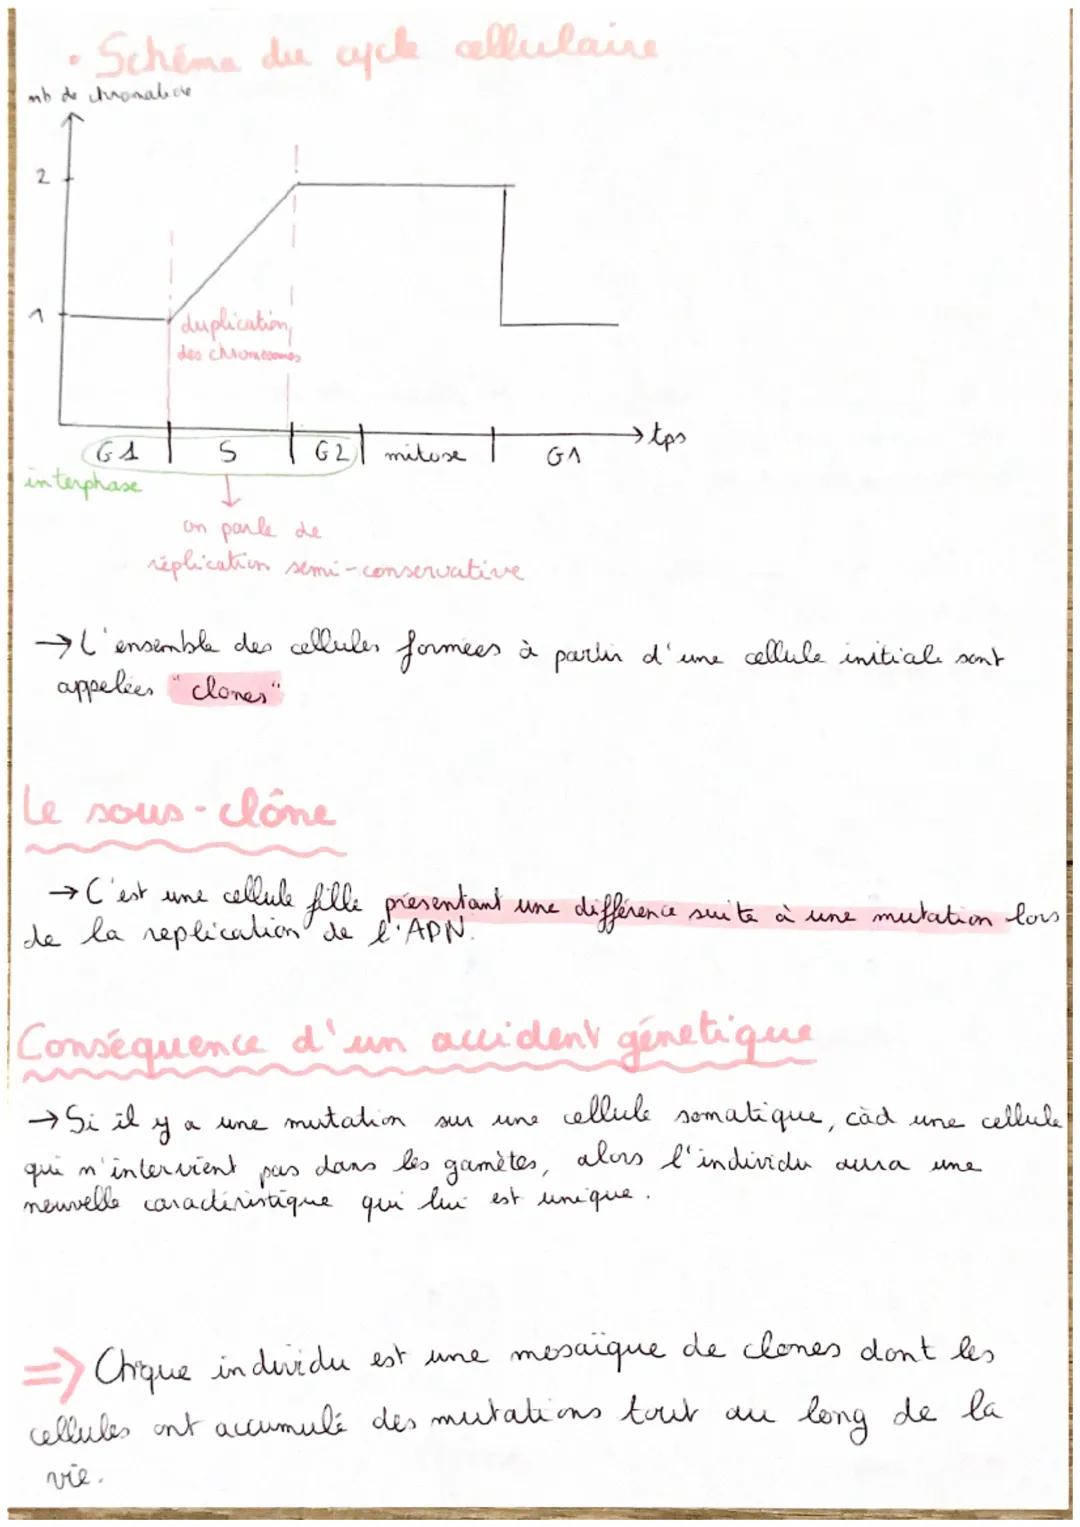 • Schéma du cycle cellulaire
nb de chromatide
2
1
duplication
des chromosomes
G1 S G2 mitose G1 → tps
interphase
on parle de
réplication semi-conservative
→ L'ensemble des cellules formées à partir d'une cellule initiale sont
appelées "clones"
Le sous-clône
→ C'est une cellule fille présentant une différence suite à une mutation lors
de la replication de l'ADN.
Conséquence d'un accident génetique
→ Si il y a une mutation sur une cellule somatique, càd une cellule
qui n'intervient pas dans les gamètes, alors l'individu aura une
nouvelle caractéristique qui lui est unique.
⇒ Chaque individu est une mosaïque de clones dont les
cellules ont accumulé des mutations tout au long de la
vie.